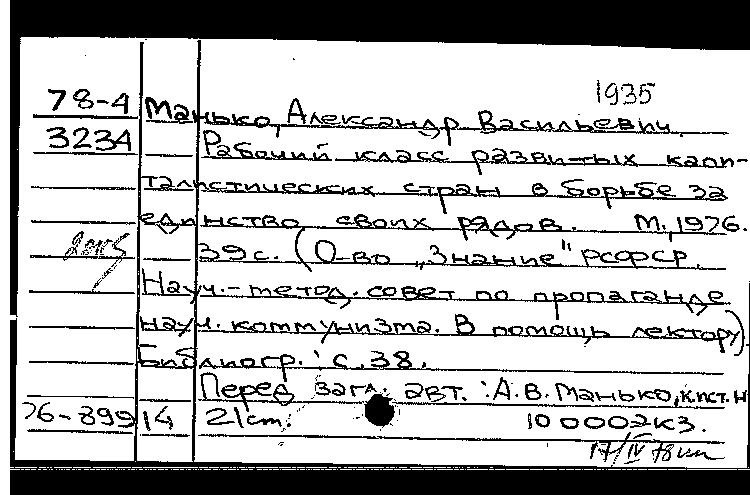 1935
78-4 Манько, Александр Васильевич.
3234 Рабочий класс развитых капи-
талистических стран в борьбе за
единство своих рядов. М., 1976.
39 с. (О-во „Знание" РСФСР.
Науч.-метод. совет по пропаганде
науч. коммунизма. В помощь лектору).
Библиогр.: с. 38.
Перед загл. авт.: А.В. Манько, к.ист.н
76-899 14 21 cm. 10 000 2к3.
17/IV 78